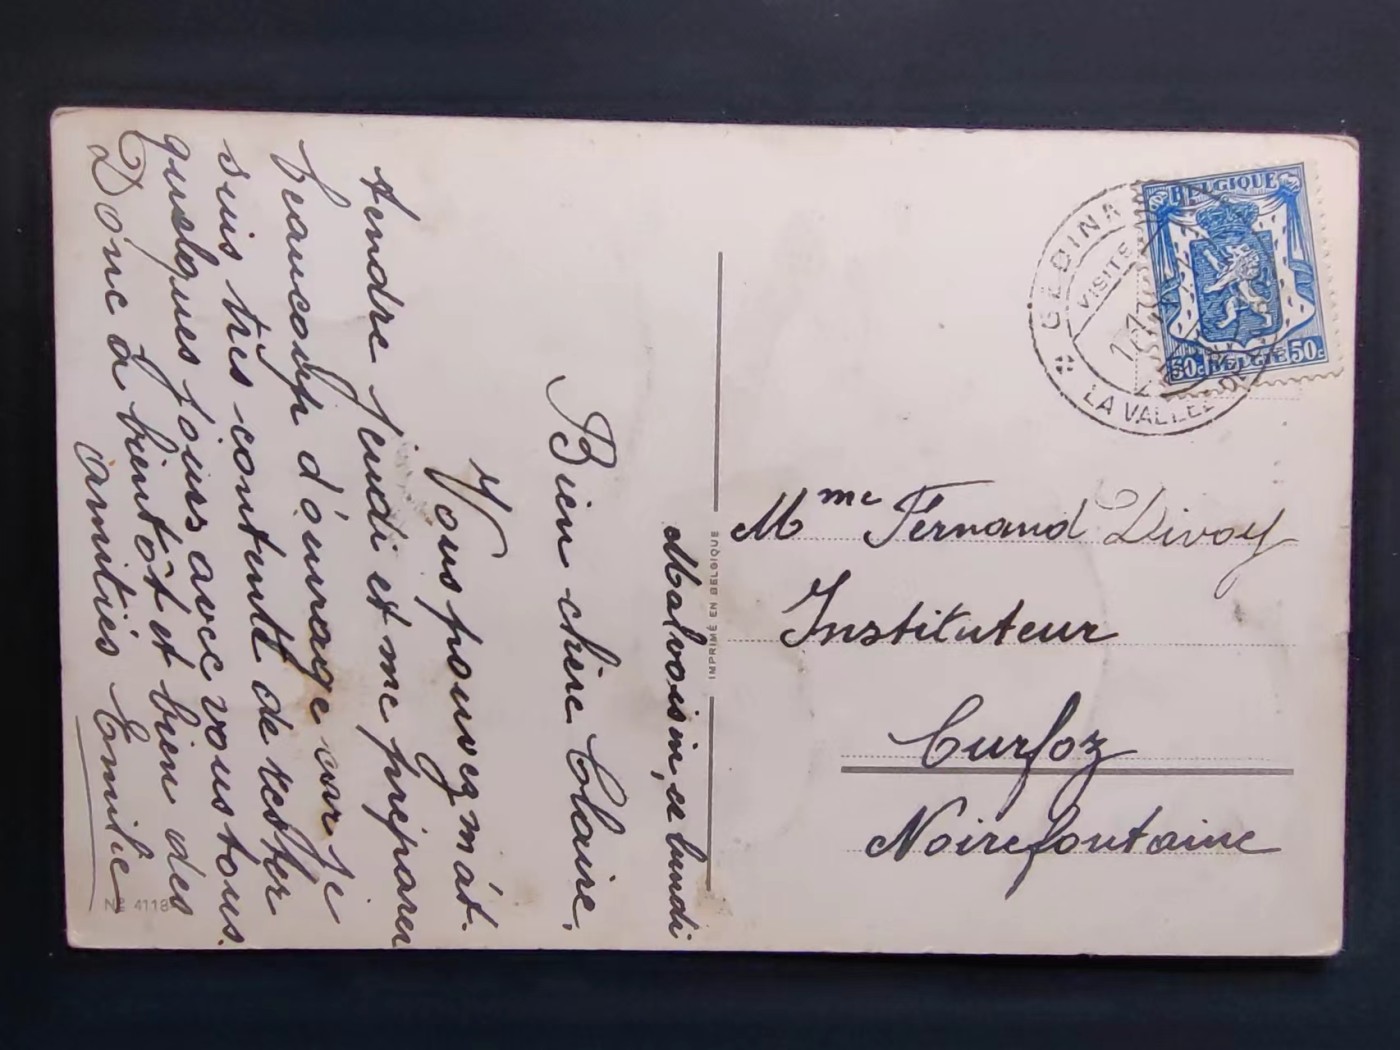 Malvoisin, ce lundi
Bien chère Claire,
Vous pouvez m'at-
tendre jeudi et me préparer
beaucoup d'ouvrage car je
suis très contente de rester
quelques jours avec vous tous.
Donc à bientôt et bien des
amitiés Emilie
Nº 4118
IMPRIMÉ EN BELGIQUE
GEDINA
VISITE
LA VALLEE
BELGIQUE
50c BELGIE 50c
Mme Fernand Divoy
Instituteur
Curfoz
Noirefontaine